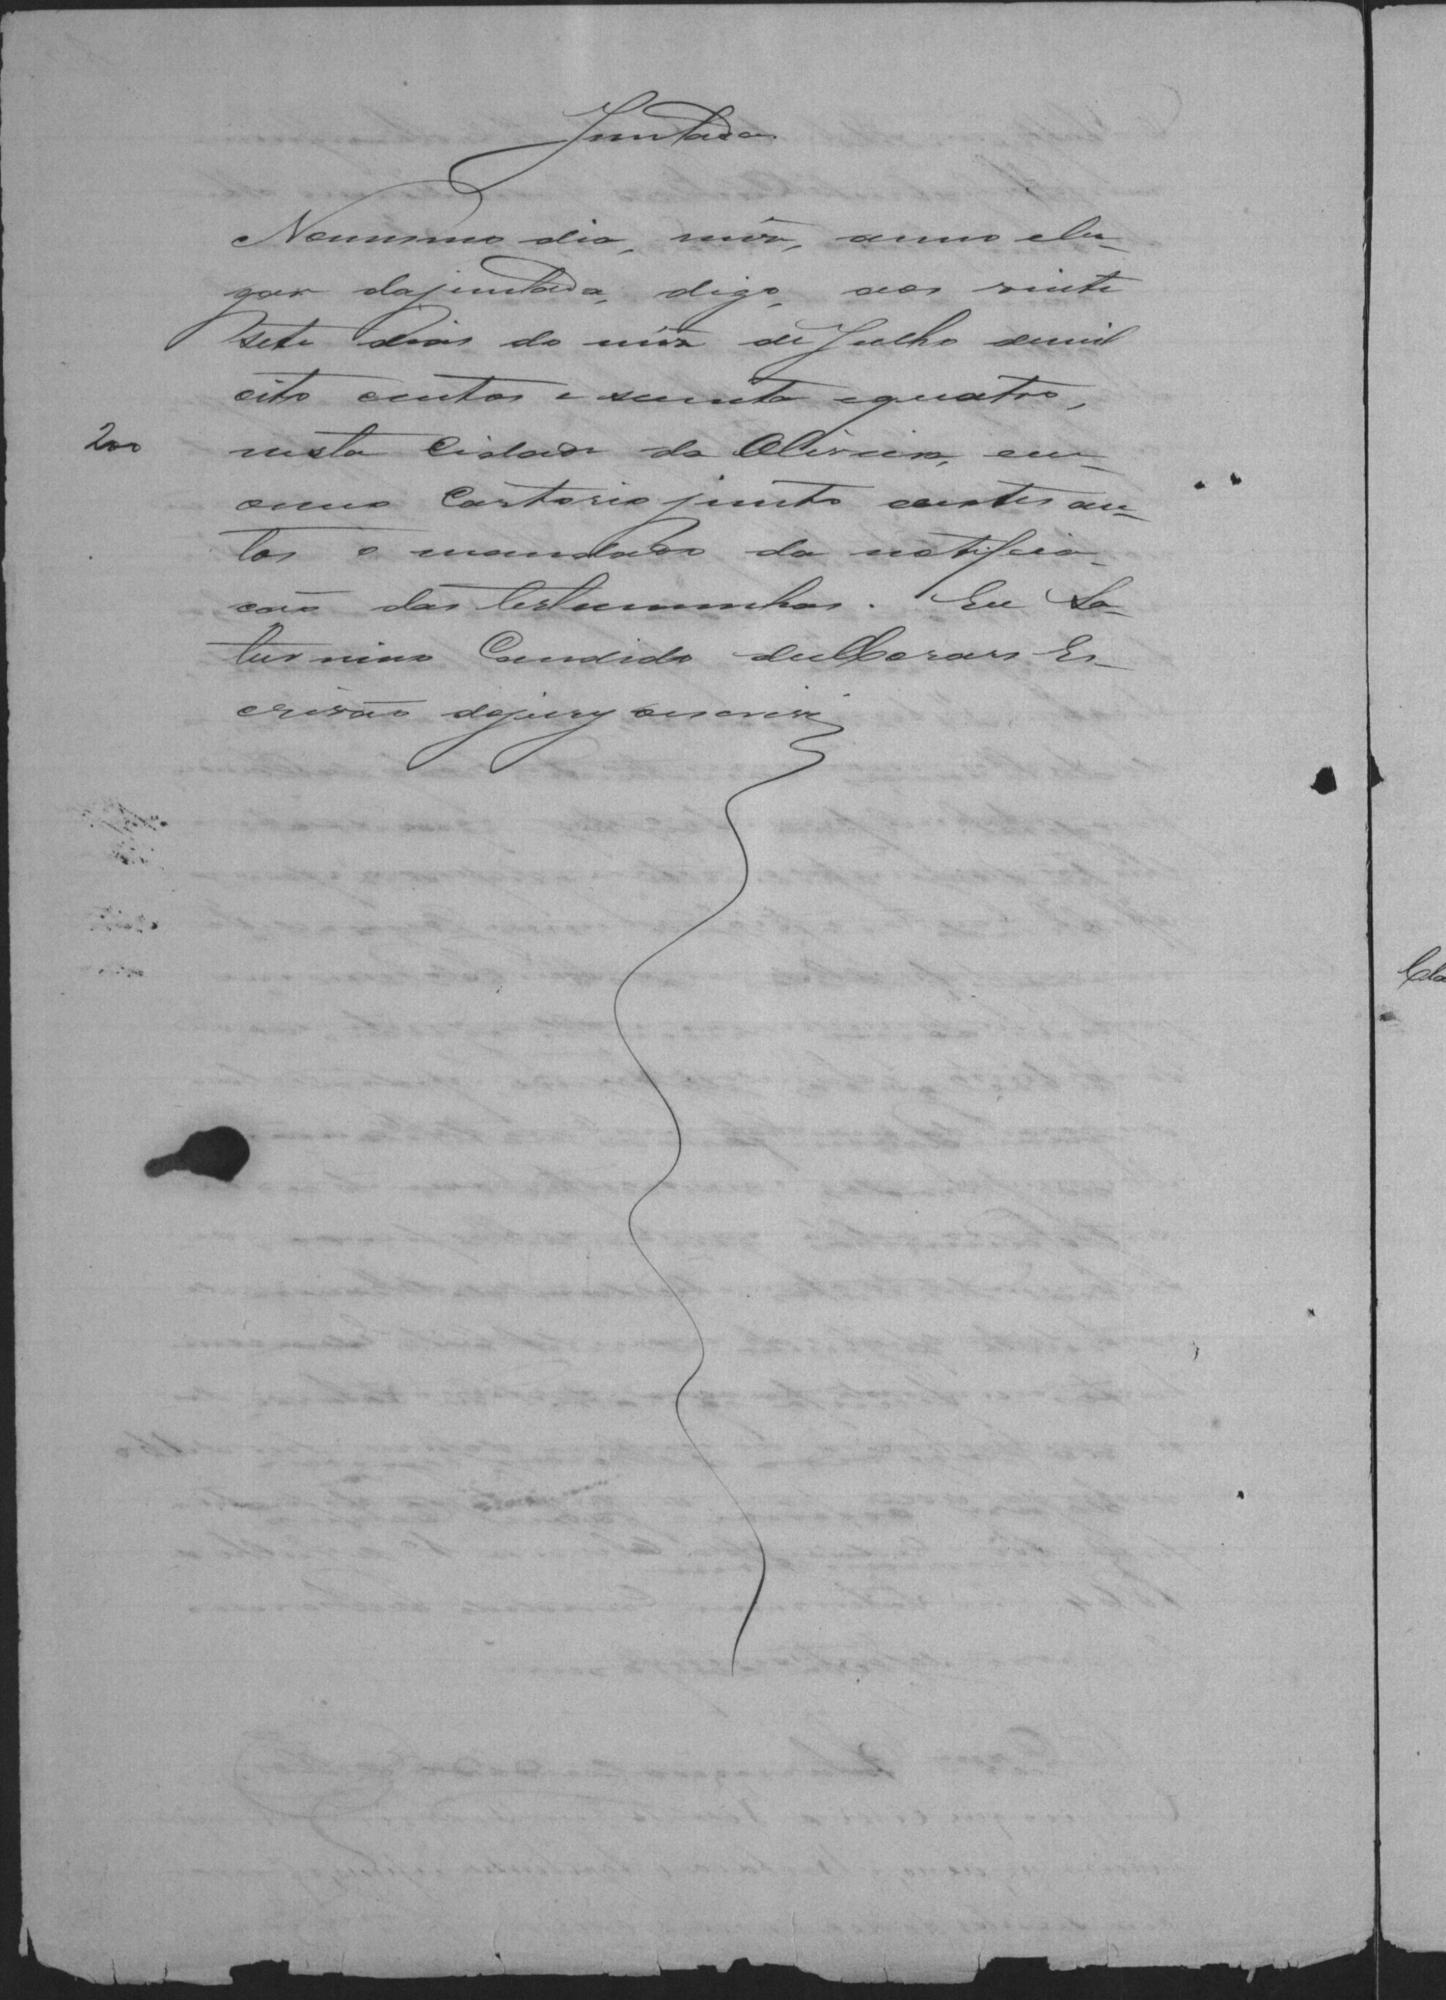 Juntada
No mesmo dia, mêz, anno e lu-
gar da juntada, digo, aos vinte
sete dias do mêz de Julho de mil
oito centos e secenta e quatro,
200
nesta Cidade da Oliveira, em
o meu Cartorio junto a estes au-
tos o mandado da notifica-
ção das testemunhas. Eu Sa-
turnino Candido de Moraes Es-
crivão do jury o escrivi